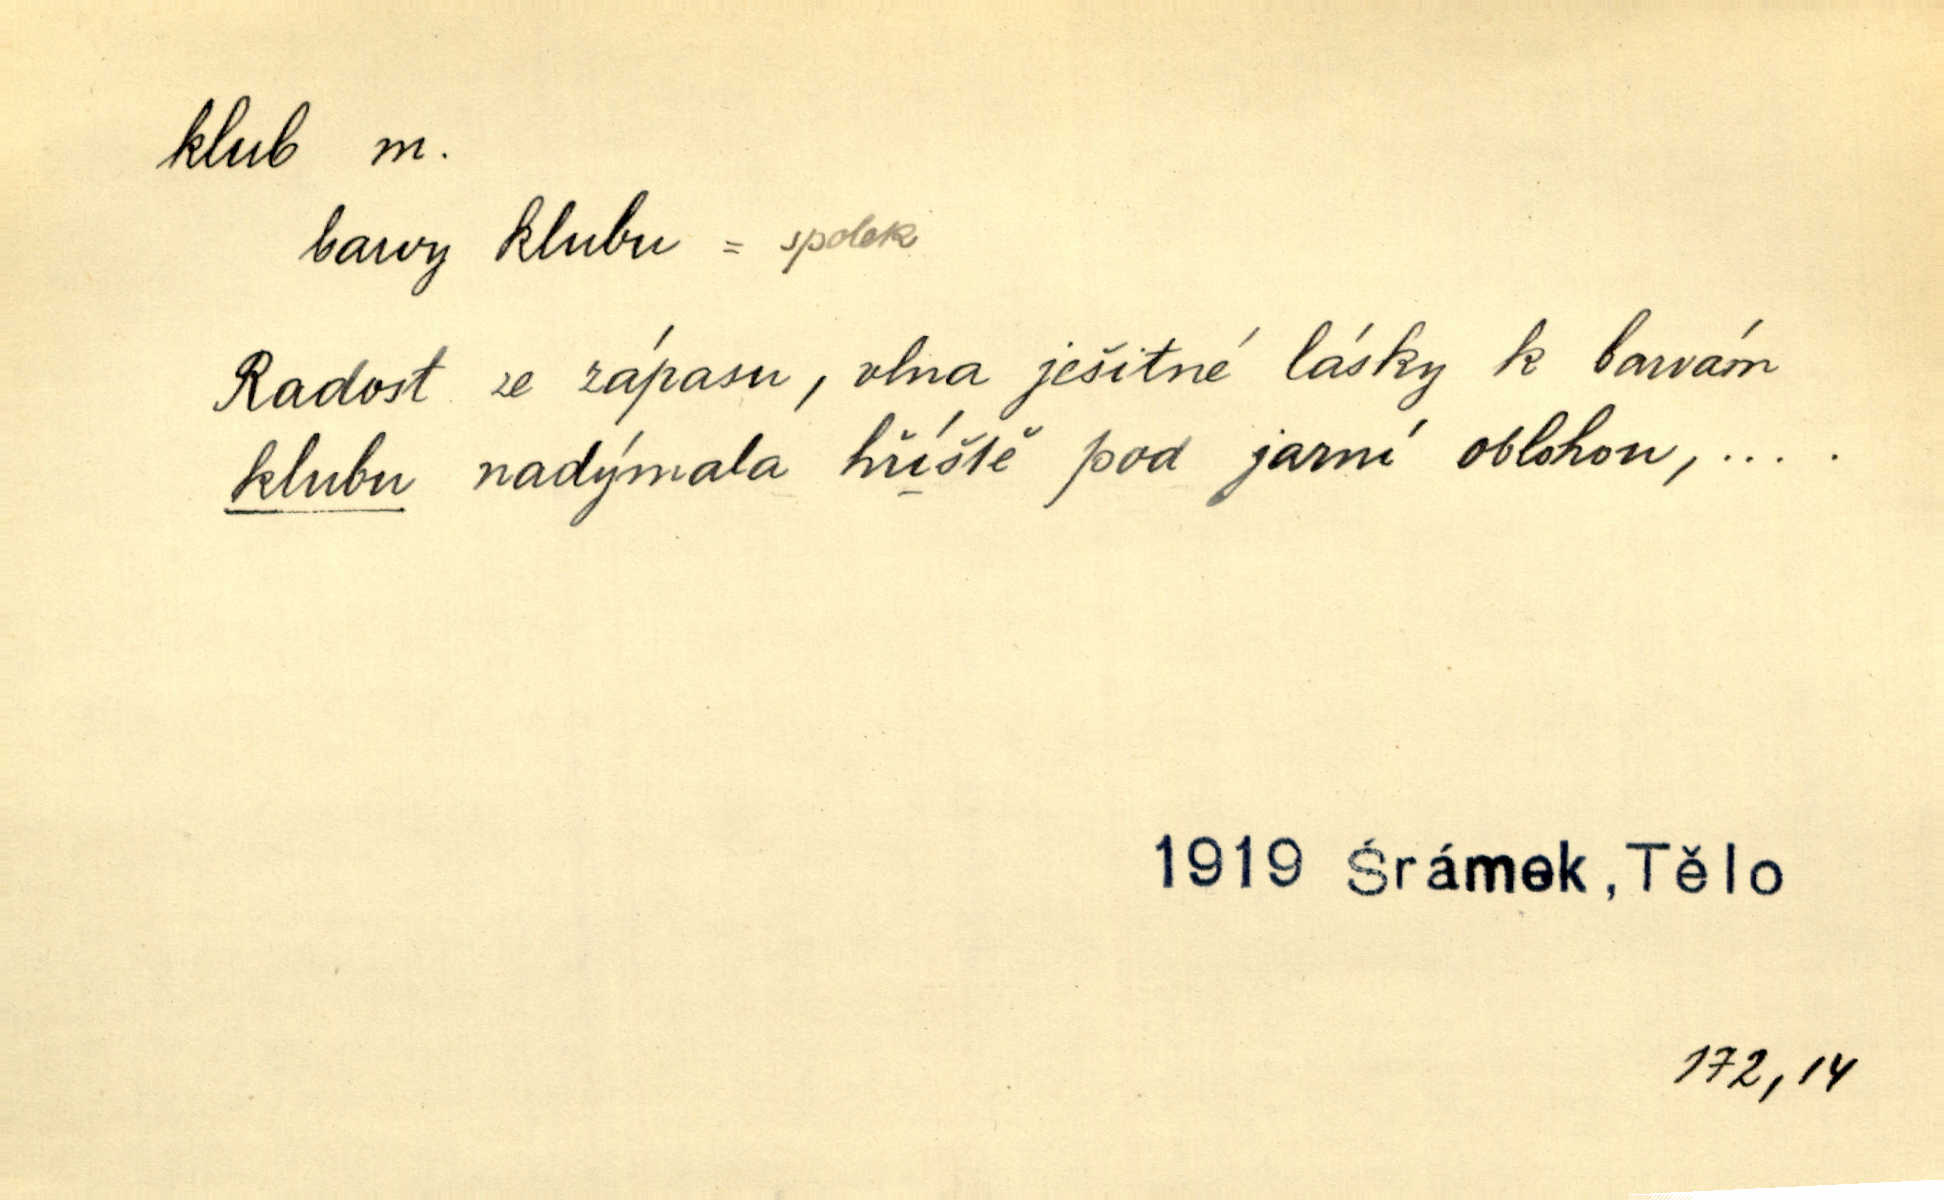 klub m.
barvy klubu = spolek
Radost ze zápasu, vlna ješitné lásky k barvám
klubu nadýmala hříště pod jarní oblohou, ... .
1919 Šrámek, Tělo
172, 14